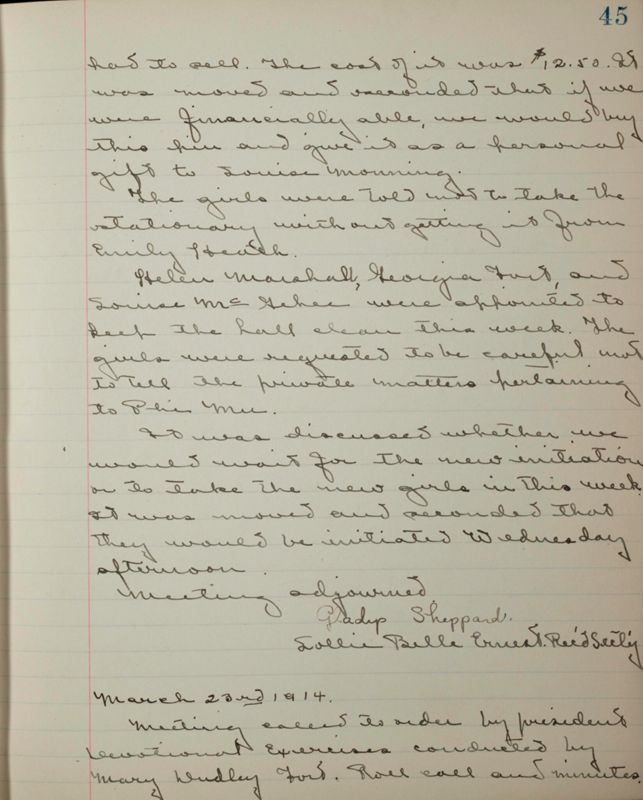 45
had to sell. The cost of it was $12.50. It
was moved and seconded that if we
were financially able, we would buy
this pin and give it as a personal
gift to Louise Monning.
The girls were told not to take the
stationary without getting it from
Emily Heath.
Helen Marshall, Georgia Fort, and
Louise McGehee were appointed to
keep the hall clean this week. The
girls were requested to be careful not
to tell the private matters pertaining
to Phi Mu.
It was discussed whether we
would wait for the new initiation
or to take the new girls in this week
It was moved and seconded that
they would be initiated Wednesday
afternoon.
Meeting adjourned.
Gladys Sheppard.
Lollie Belle Ernest. Rec'd Sec'ty
March 23rd 1914.
Meeting called to order by president
Devotional Exercises conducted by
Mary Dudley Fort. Roll call and minutes